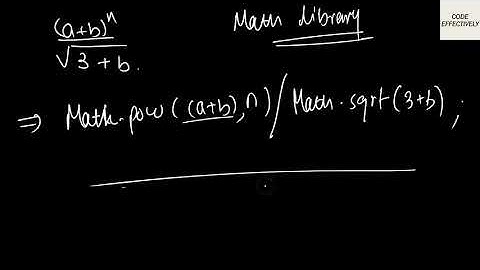 (a+b)^n
√3+b.
Math library
CODE
EFFECTIVELY
⇒ Math.pow((a+b),n)/Math.sqrt(3+b);